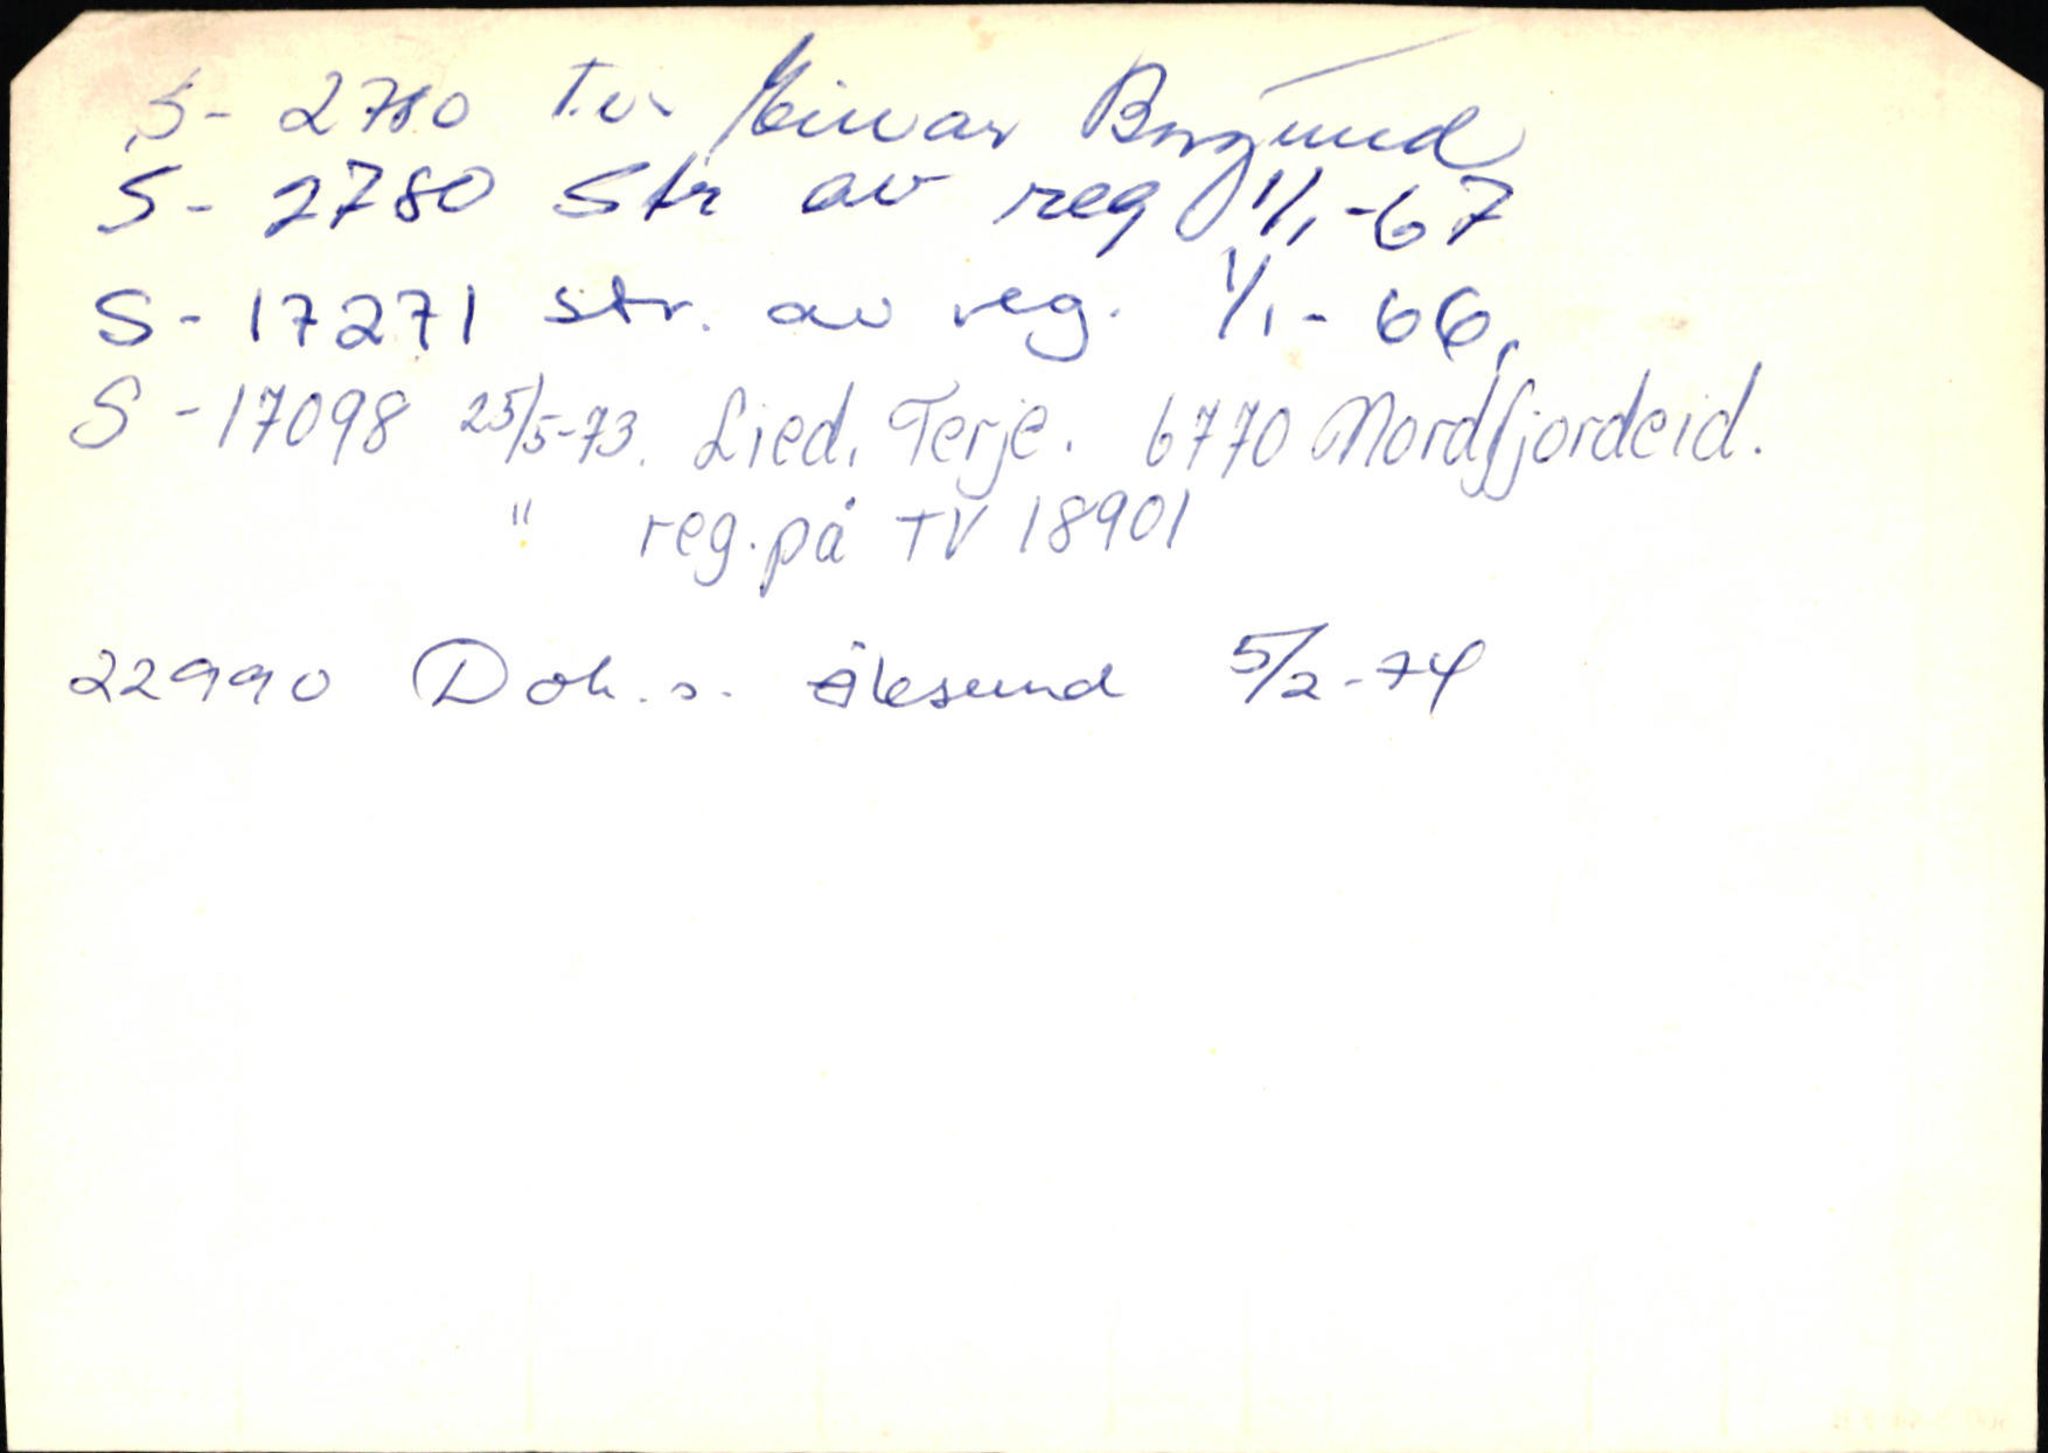 S- 2780 T.v. Einar Borgund
S- 2780 Str av reg 1/1-67
S- 17271 str. av reg. 1/1- 66,
S - 17098 25/5-73. Lied, Terje. 6770 Nordfjordeid.
" reg. på TV 18901
22990 Dok. s. Ålesund 5/2-74